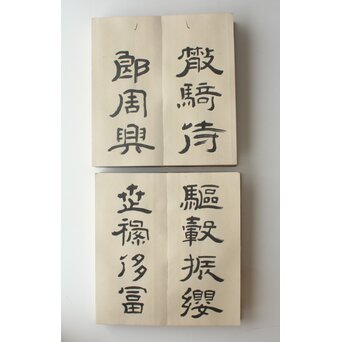 散騎侍
郎周興
驅轂振纓
世祿侈富